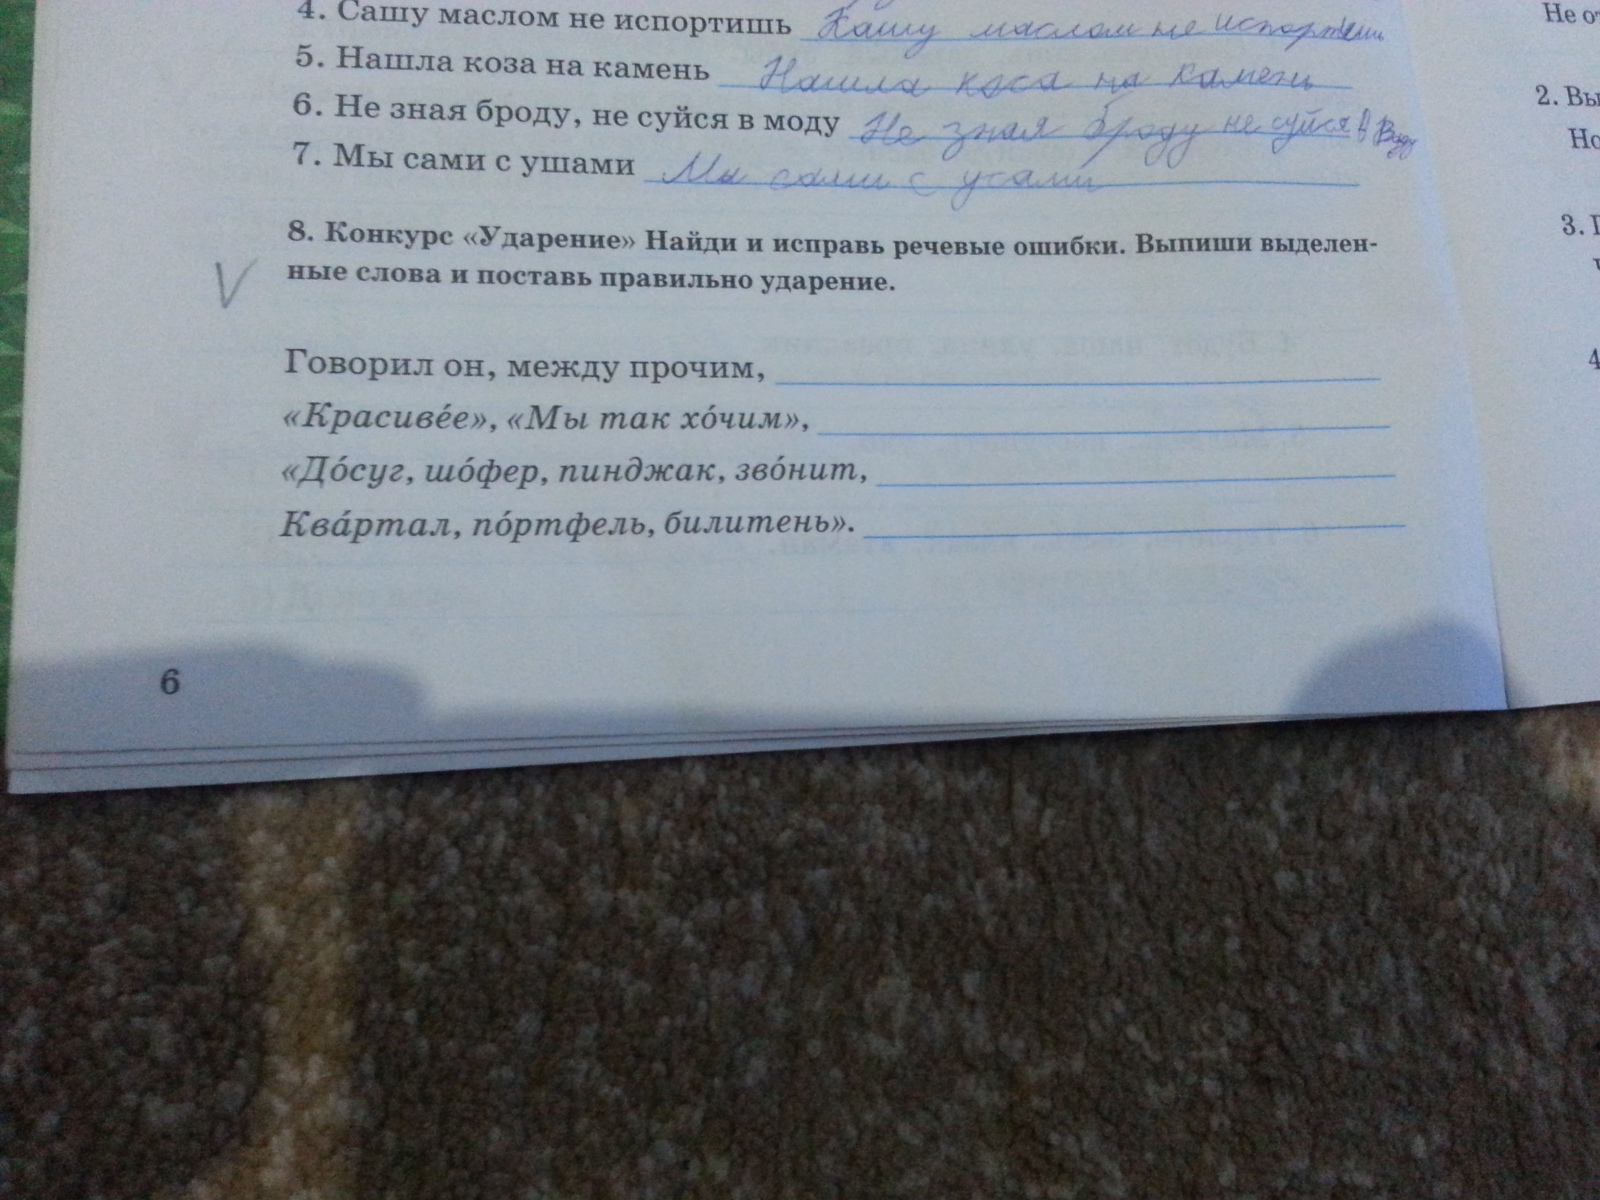 4. Сашу маслом не испортишь Кашу маслом не испортишь
5. Нашла коза на камень Нашла коса на камень
6. Не зная броду, не суйся в моду Не зная броду не суйся в воду
7. Мы сами с ушами Мы сами с усами
8. Конкурс «Ударение» Найди и исправь речевые ошибки. Выпиши выделен-
ные слова и поставь правильно ударение.
V
Говорил он, между прочим,
«Краси­ве́е», «Мы так хо́чим»,
«До́суг, шо́фер, пинджак, зво́нит,
Ква́ртал, по́ртфель, билитень».
6
Не
2. Вы
Но
3.
4